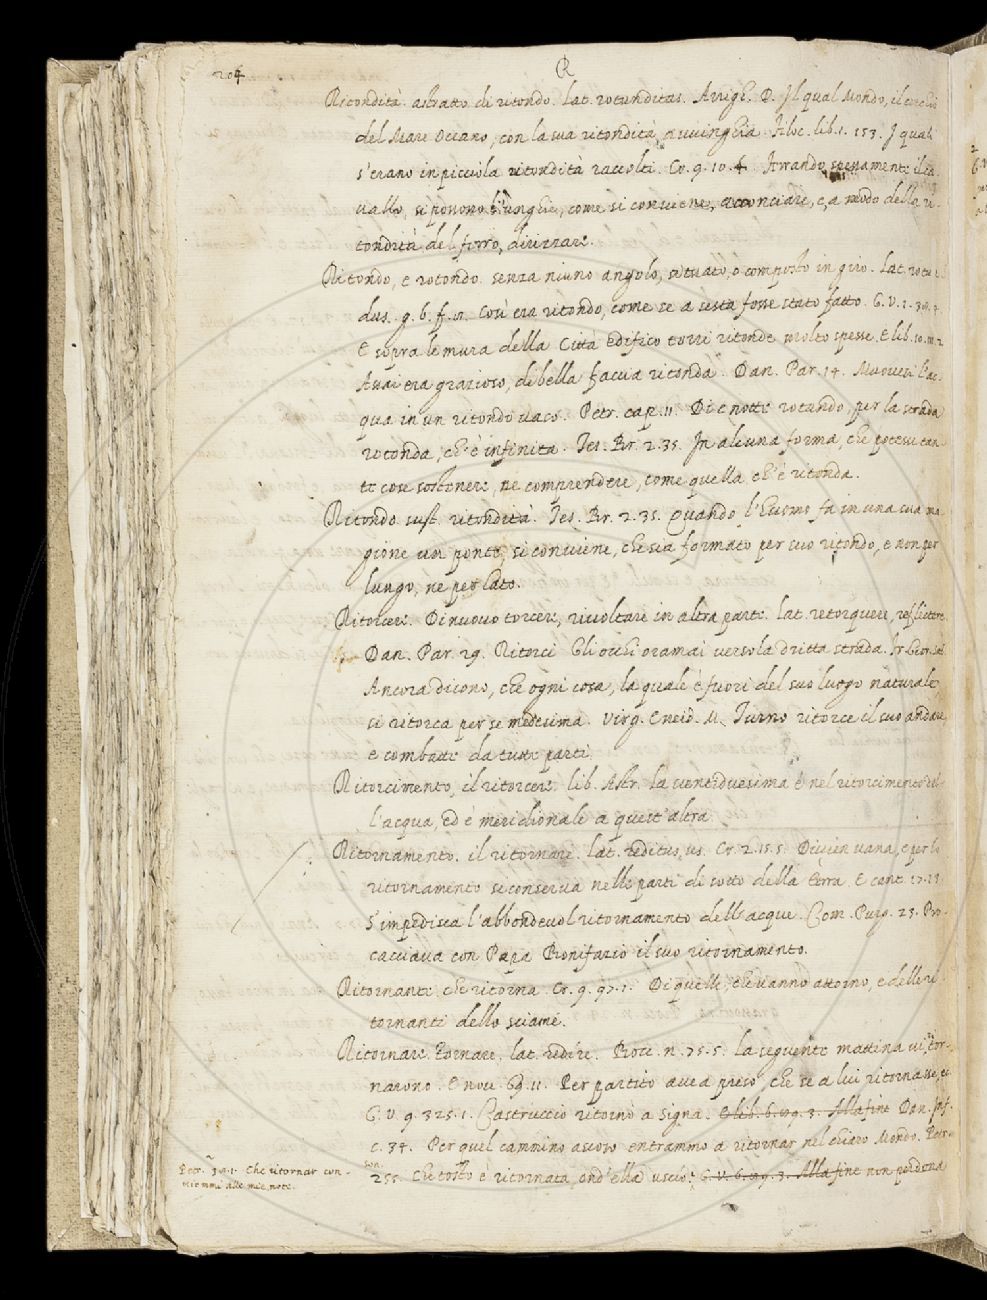 204
R
Ritondità. astratto di ritondo. lat. rotunditas. Arrigh. D. Il qual Mondo, il cerchio
del Mare Oceano, con la sua ritondità, avvinghia. Filoc. lib. 1. 153. I quali
s'erano in picciola ritondità raccolti. Cr. 9. 10. 4. Ferrando spessamente il ca-
vallo, si possono l'unghie, come si conviene, acconciare, e, a modo della ri-
tondità del ferro, dirizzare.
Ritondo, e rotondo. senza niuno angolo, situato, o composto in giro. Lat. rotun-
dus. g. 6. f. n. Così era ritondo, come se a sesta fosse stato fatto. G. V. 1. 38. 4.
E sopra le mura della Città edifico torri ritonde molto spesse. E lib. 10. m. 2
Assai era grazioso, di bella faccia ritonda. Dan. Par. 14. Muovesi l'ac-
qua in un ritondo vaso. Petr. cap. 11. Dì e notte rotando, per la strada
rotonda, ch'è infinita. Tes. Br. 2. 35. In alcuna forma, che potesse tan-
te cose sostenere, ne comprendere, come quella ch'è ritonda.
Ritondo sust. ritondità. Tes. Br. 2. 35. Quando l'Huomo fa in una sua ma-
gione un ponte, si conviene, che sia formato per suo ritondo, e non per
lungo, ne per lato.
Ritorcere. Di nuovo torcere, rivoltare in altra parte. lat. retorquere, reflectere.
Dan. Par. 29. Ritorci gli occhi oramai verso la dritta strada. fr. Gior.
Ancora dicono, che ogni cosa, la quale è fuori del suo luogo naturale,
si ritorca per se medesima. Virg. Eneid. M. Turno ritorce il suo andare,
e combatte da tutte parti.
Ritorcimento, il ritorcere. lib. Astr. la ventiduesima è nel ritorcimento del-
l'acqua, ed è meridionale a quest'altra.
Ritornamento. il ritornare. lat. reditus, us. Cr. 2. 15. 5. Divien vana, e per lo
ritornamento si conserva nelle parti di sotto della terra. E cont. 17. 11
S'impedisca l'abbondevol ritornamento dell'acque. Com. Purg. 23. Pro-
cacciava con Papa Bonifazio il suo ritornamento.
Ritornante, che ritorna. Cr. 9. 97. 1. Di quelle, che vanno attorno, e delle ri-
tornanti dello sciame.
Ritornare. Tornare, lat. redire. Bocc. n. 75. 5. La seguente mattina vi ritor-
narono. E nov. 69. 11. Per partito avea preso, che se a lui ritornasse, ec
G. V. 9. 325. 1. Castruccio ritornò a Signa. E lib. 6. 89. 3. Alla fine Dan. Inf.
c. 34. Per quel cammino ascoso entrammo a ritornar nel chiaro Mondo. Petr.
son.
255. Che tosto è ritornata, ond'ella uscio. G. V. 6. 89. 3. Alla fine non potendo
Petr. 301. Che ritornar con-
viemmi alle mie note.